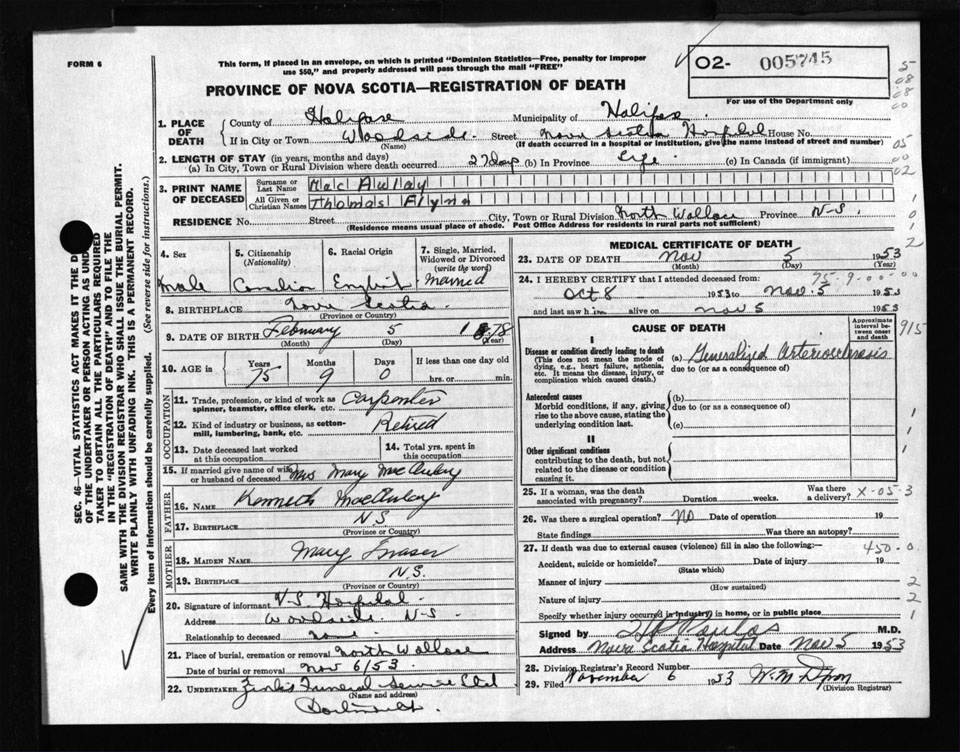 FORM 6
This form, if placed in an envelope, on which is printed "Dominion Statistics—Free, penalty for improper
use $50," and properly addressed will pass through the mail "FREE"
02- 005745
For use of the Department only
PROVINCE OF NOVA SCOTIA—REGISTRATION OF DEATH
1. PLACE OF DEATH
County of Halifax Municipality of Halifax
If in City or Town Woodside Street Nova Scotia Hospital House No.
(Name) (If death occurred in a hospital or institution, give the name instead of street and number)
2. LENGTH OF STAY (in years, months and days)
(a) In City, Town or Rural Division where death occurred 27 days (b) In Province Life (c) In Canada (if immigrant)
3. PRINT NAME OF DECEASED
Surname or Last Name MacAulay
All Given or Christian Names Thomas Flynn
RESIDENCE No. Street City, Town or Rural Division North Wallace Province N-S.
(Residence means usual place of abode. Post Office Address for residents in rural parts not sufficient)
4. Sex Male
5. Citizenship (Nationality) Canadian
6. Racial Origin English
7. Single, Married, Widowed or Divorced (write the word) Married
8. BIRTHPLACE Nova Scotia
(Province or Country)
9. DATE OF BIRTH February 5 1878
(Month) (Day) (Year)
10. AGE in Years 75 Months 9 Days 0 If less than one day old
hrs. or min.
OCCUPATION
11. Trade, profession, or kind of work as spinner, teamster, office clerk, etc. Carpenter
12. Kind of industry or business, as cotton-mill, lumbering, bank, etc. Retired
13. Date deceased last worked at this occupation
14. Total yrs. spent in this occupation
15. If married give name of wife or husband of deceased Mrs Mary MacAulay
FATHER
16. NAME Kenneth MacAulay
17. BIRTHPLACE N.S.
(Province or Country)
MOTHER
18. MAIDEN NAME Mary Fraser
19. BIRTHPLACE N.S.
(Province or Country)
20. Signature of informant N.S Hospital
Address Woodside N-S
Relationship to deceased none
21. Place of burial, cremation or removal North Wallace
Date of burial or removal Nov 6/53
22. UNDERTAKER Zink's Funeral Service Ltd
(Name and address)
Dartmouth
MEDICAL CERTIFICATE OF DEATH
23. DATE OF DEATH Nov 5 1953
(Month) (Day) (Year)
24. I HEREBY CERTIFY that I attended deceased from: 75-9-00-00
Oct 8 1953 to Nov. 5 1953
and last saw him alive on Nov 5 1953
CAUSE OF DEATH
Approximate interval between onset and death
915
I
Disease or condition directly leading to death
(This does not mean the mode of dying, e.g., heart failure, asthenia, etc. It means the disease, injury, or complication which caused death.)
(a) Generalized Arteriosclerosis
due to (or as a consequence of)
Antecedent causes
Morbid conditions, if any, giving rise to the above cause, stating the underlying condition last.
(b)
due to (or as a consequence of)
(c)
II
Other significant conditions
contributing to the death, but not related to the disease or condition causing it.
25. If a woman, was the death associated with pregnancy? Duration weeks. Was there a delivery? X-05-3
26. Was there a surgical operation? No Date of operation 19
State findings Was there an autopsy?
27. If death was due to external causes (violence) fill in also the following:— 450-0
Accident, suicide or homicide? Date of injury 19
(State which)
Manner of injury
(How sustained)
Nature of injury
Specify whether injury occurred in industry, in home, or in public place
Signed by M.D.
Address Nova Scotia Hospital Date Nov 5 1953
28. Division Registrar's Record Number
29. Filed November 6 1953 W.M. Dixon
(Division Registrar)
SEC. 46—VITAL STATISTICS ACT MAKES IT THE
OF THE UNDERTAKER OR PERSON ACTING AS
TAKER TO OBTAIN ALL THE PARTICULARS REQUIRED
IN THE "REGISTRATION OF DEATH" AND TO FILE THE
SAME WITH THE DIVISION REGISTRAR WHO SHALL ISSUE THE BURIAL PERMIT.
WRITE PLAINLY WITH UNFADING INK. THIS IS A PERMANENT RECORD.
Every item of information should be carefully supplied. (See reverse side for instructions.)
5
08
08
00
05
00
02
1
0
1
2
1
1
2
2
1